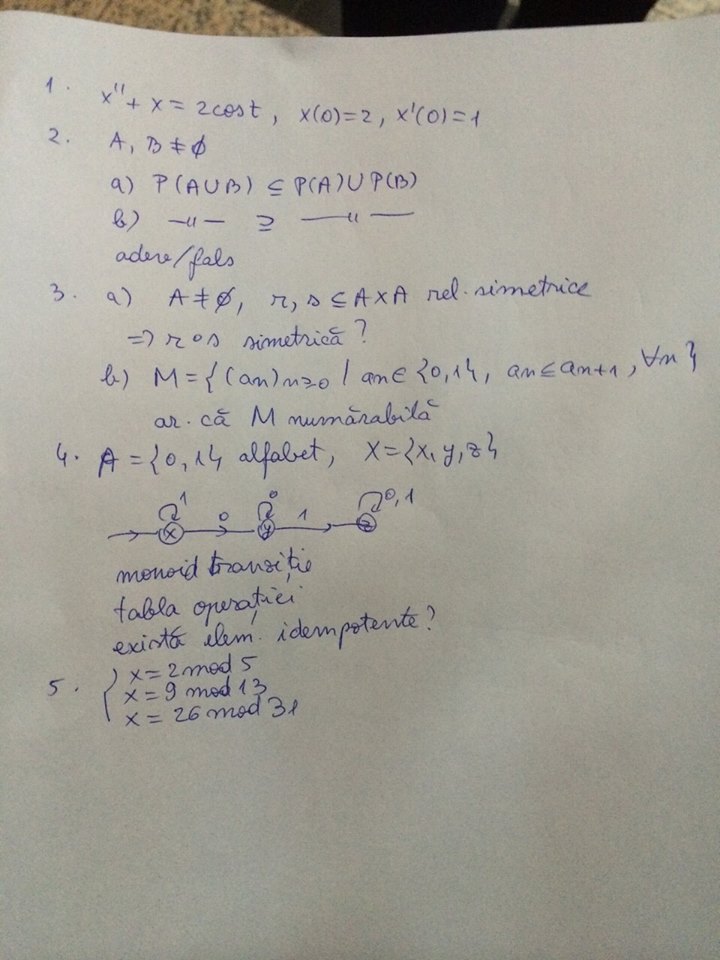 1. x'' + x = 2cost, x(0)=2, x'(0)=1
2. A, B ≠ ∅
a) P(A∪B) ⊆ P(A)∪P(B)
b) —"— ⊇ —"—
adere/fals
3. a) A≠∅, r, s ⊆ A×A rel. simetrice
=> r∘s simetrică?
b) M = {(an)n≥0 / an∈{0,1}, an≤an+1, ∀n}
ar. că M numărabilă
4. A = {0,1} alfabet, X={x,y,z}
1 0 0,1
x 0 y 1 z
monoid tranziție
tabla operației
există elem. idempotente?
5. { x = 2 mod 5
x = 9 mod 13
x = 26 mod 31